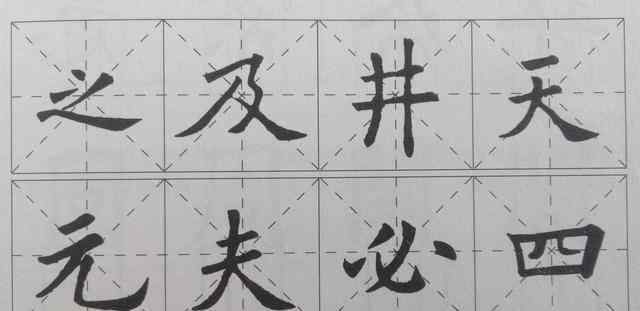 之及井天
元夫必四